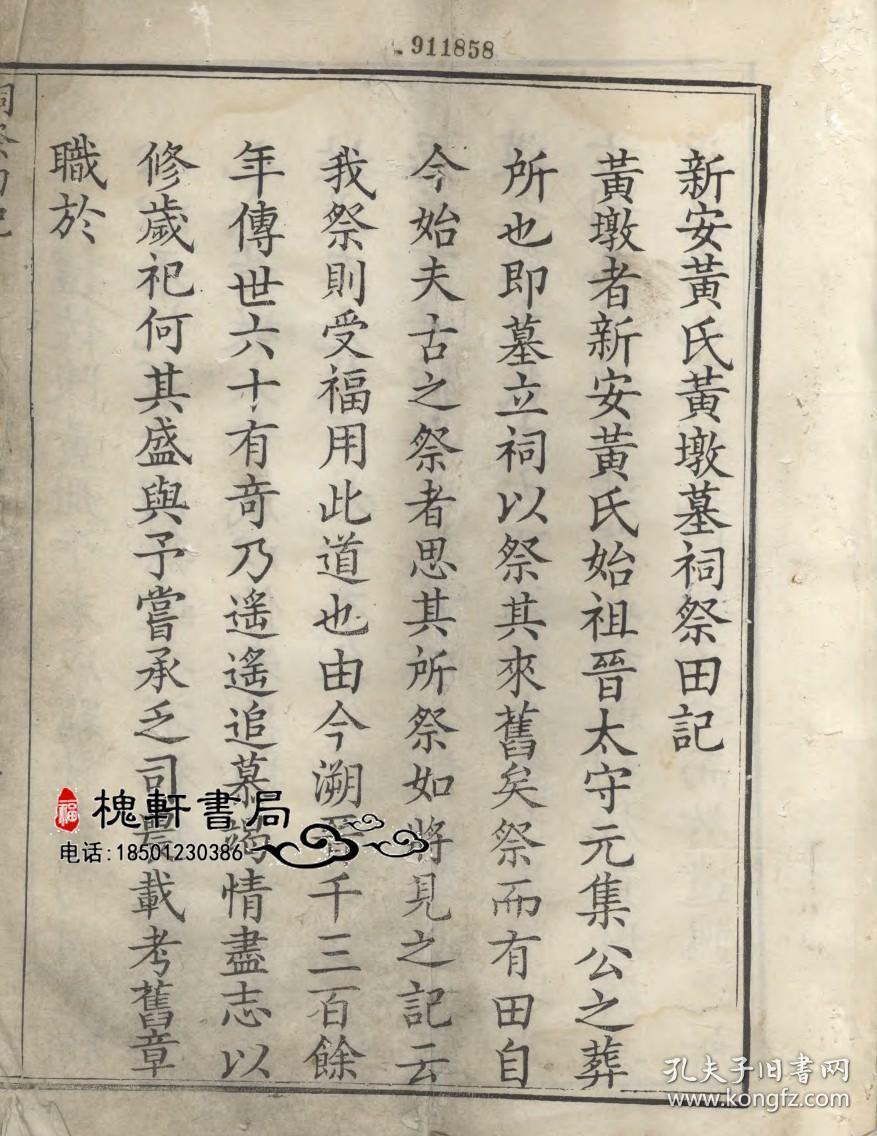 911858
新安黃氏黃墩墓祠祭田記
黃墩者新安黃氏始祖晉太守元集公之葬
所也即墓立祠以祭其來舊矣祭而有田自
今始夫古之祭者思其所祭如將見之記云
我祭則受福用此道也由今溯千三百餘
年傳世六十有奇乃遥遥追慕情盡志以
修歲祀何其盛與予嘗承乏司載考舊章
職於
槐軒書局
福
电话:18501230386
孔夫子旧书网
www.kongfz.com